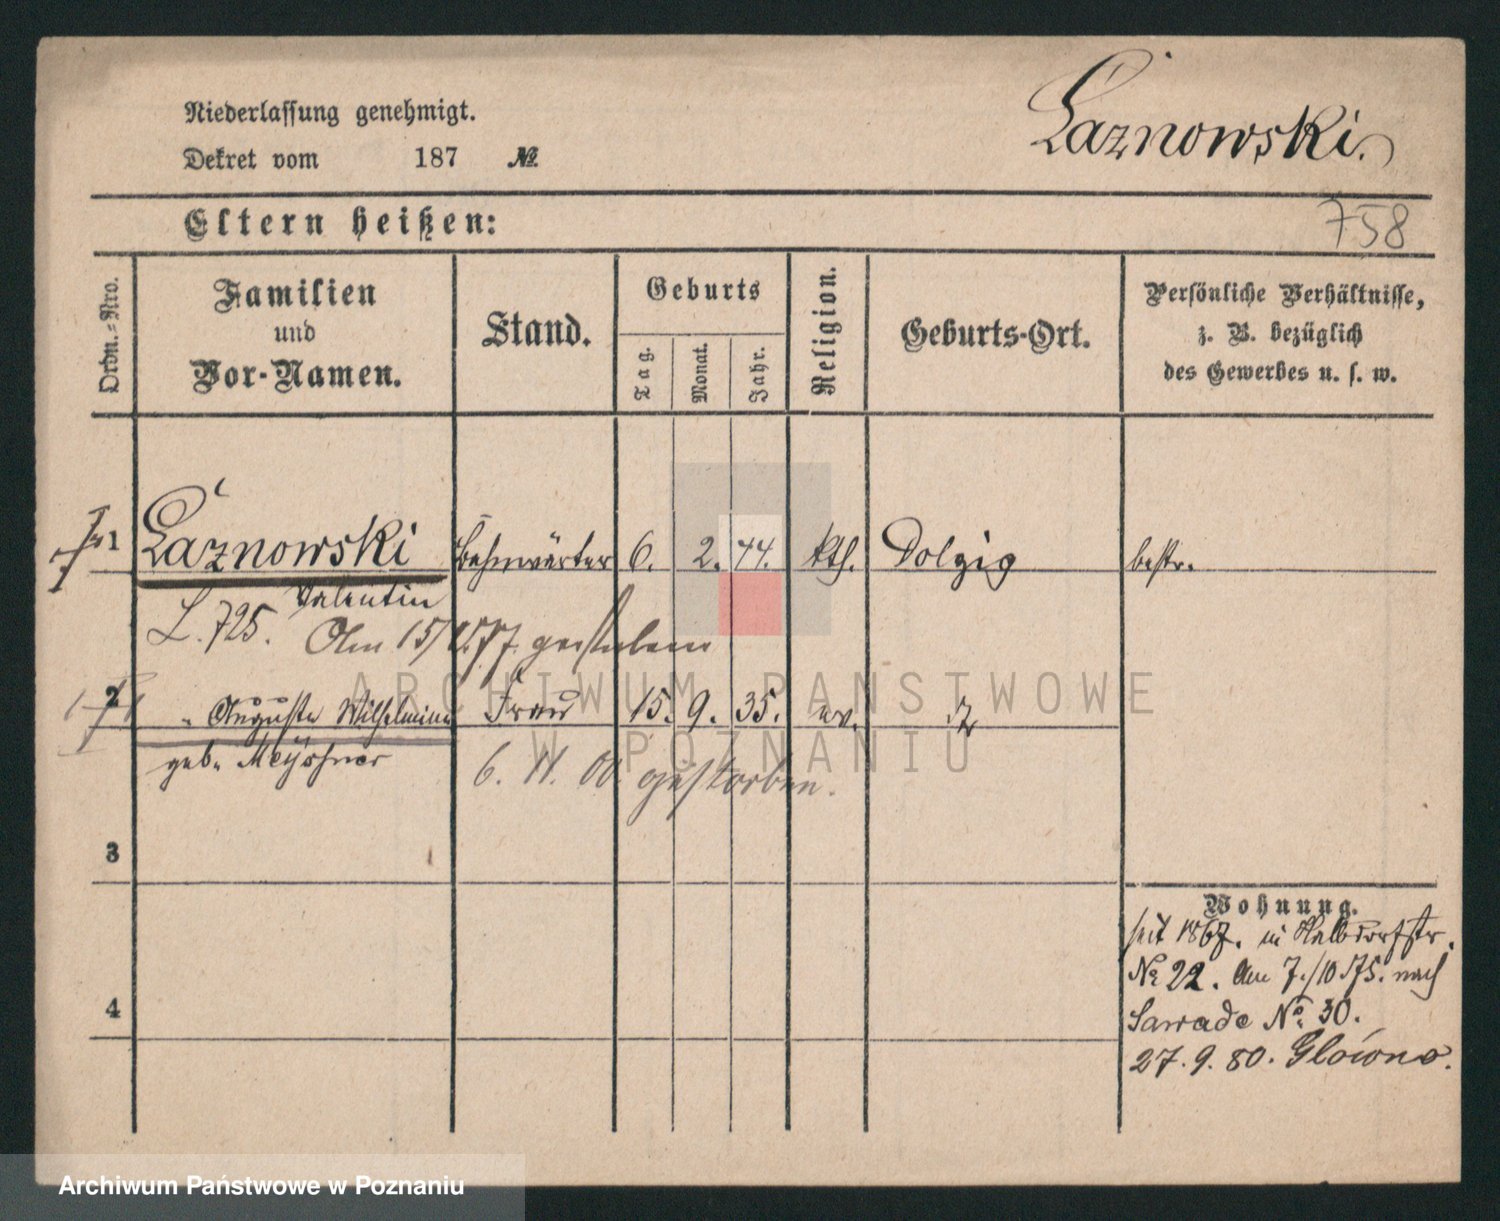 Niederlassung genehmigt.
Dekret vom 187 №
Łaznowski.
Eltern heißen:
758
Ordn.-Nro.
Familien
und
Vor-Namen.
Stand.
Geburts
Tag.
Monat.
Jahr.
Religion.
Geburts-Ort.
Persönliche Verhältnisse,
z. B. bezüglich
des Gewerbes u. s. w.
1 Łaznowski Bahnwärter 6. 2. 44. kth. Dolzig bestr.
Valentin
L. 725. Am 15/ 77. gestorben
2 " Auguste Wilhelmine Frau 15. 9. 35. ev.
geb. Meyssner 6. 11. 00 gestorben.
3
4
Wohnung.
seit 1867. in Halbdorfstr.
No 22. Am 7./10 75. nach
Sawade No. 30.
27. 9. 80. Glowno.
ARCHIWUM PAŃSTWOWE
W POZNANIU
Archiwum Państwowe w Poznaniu